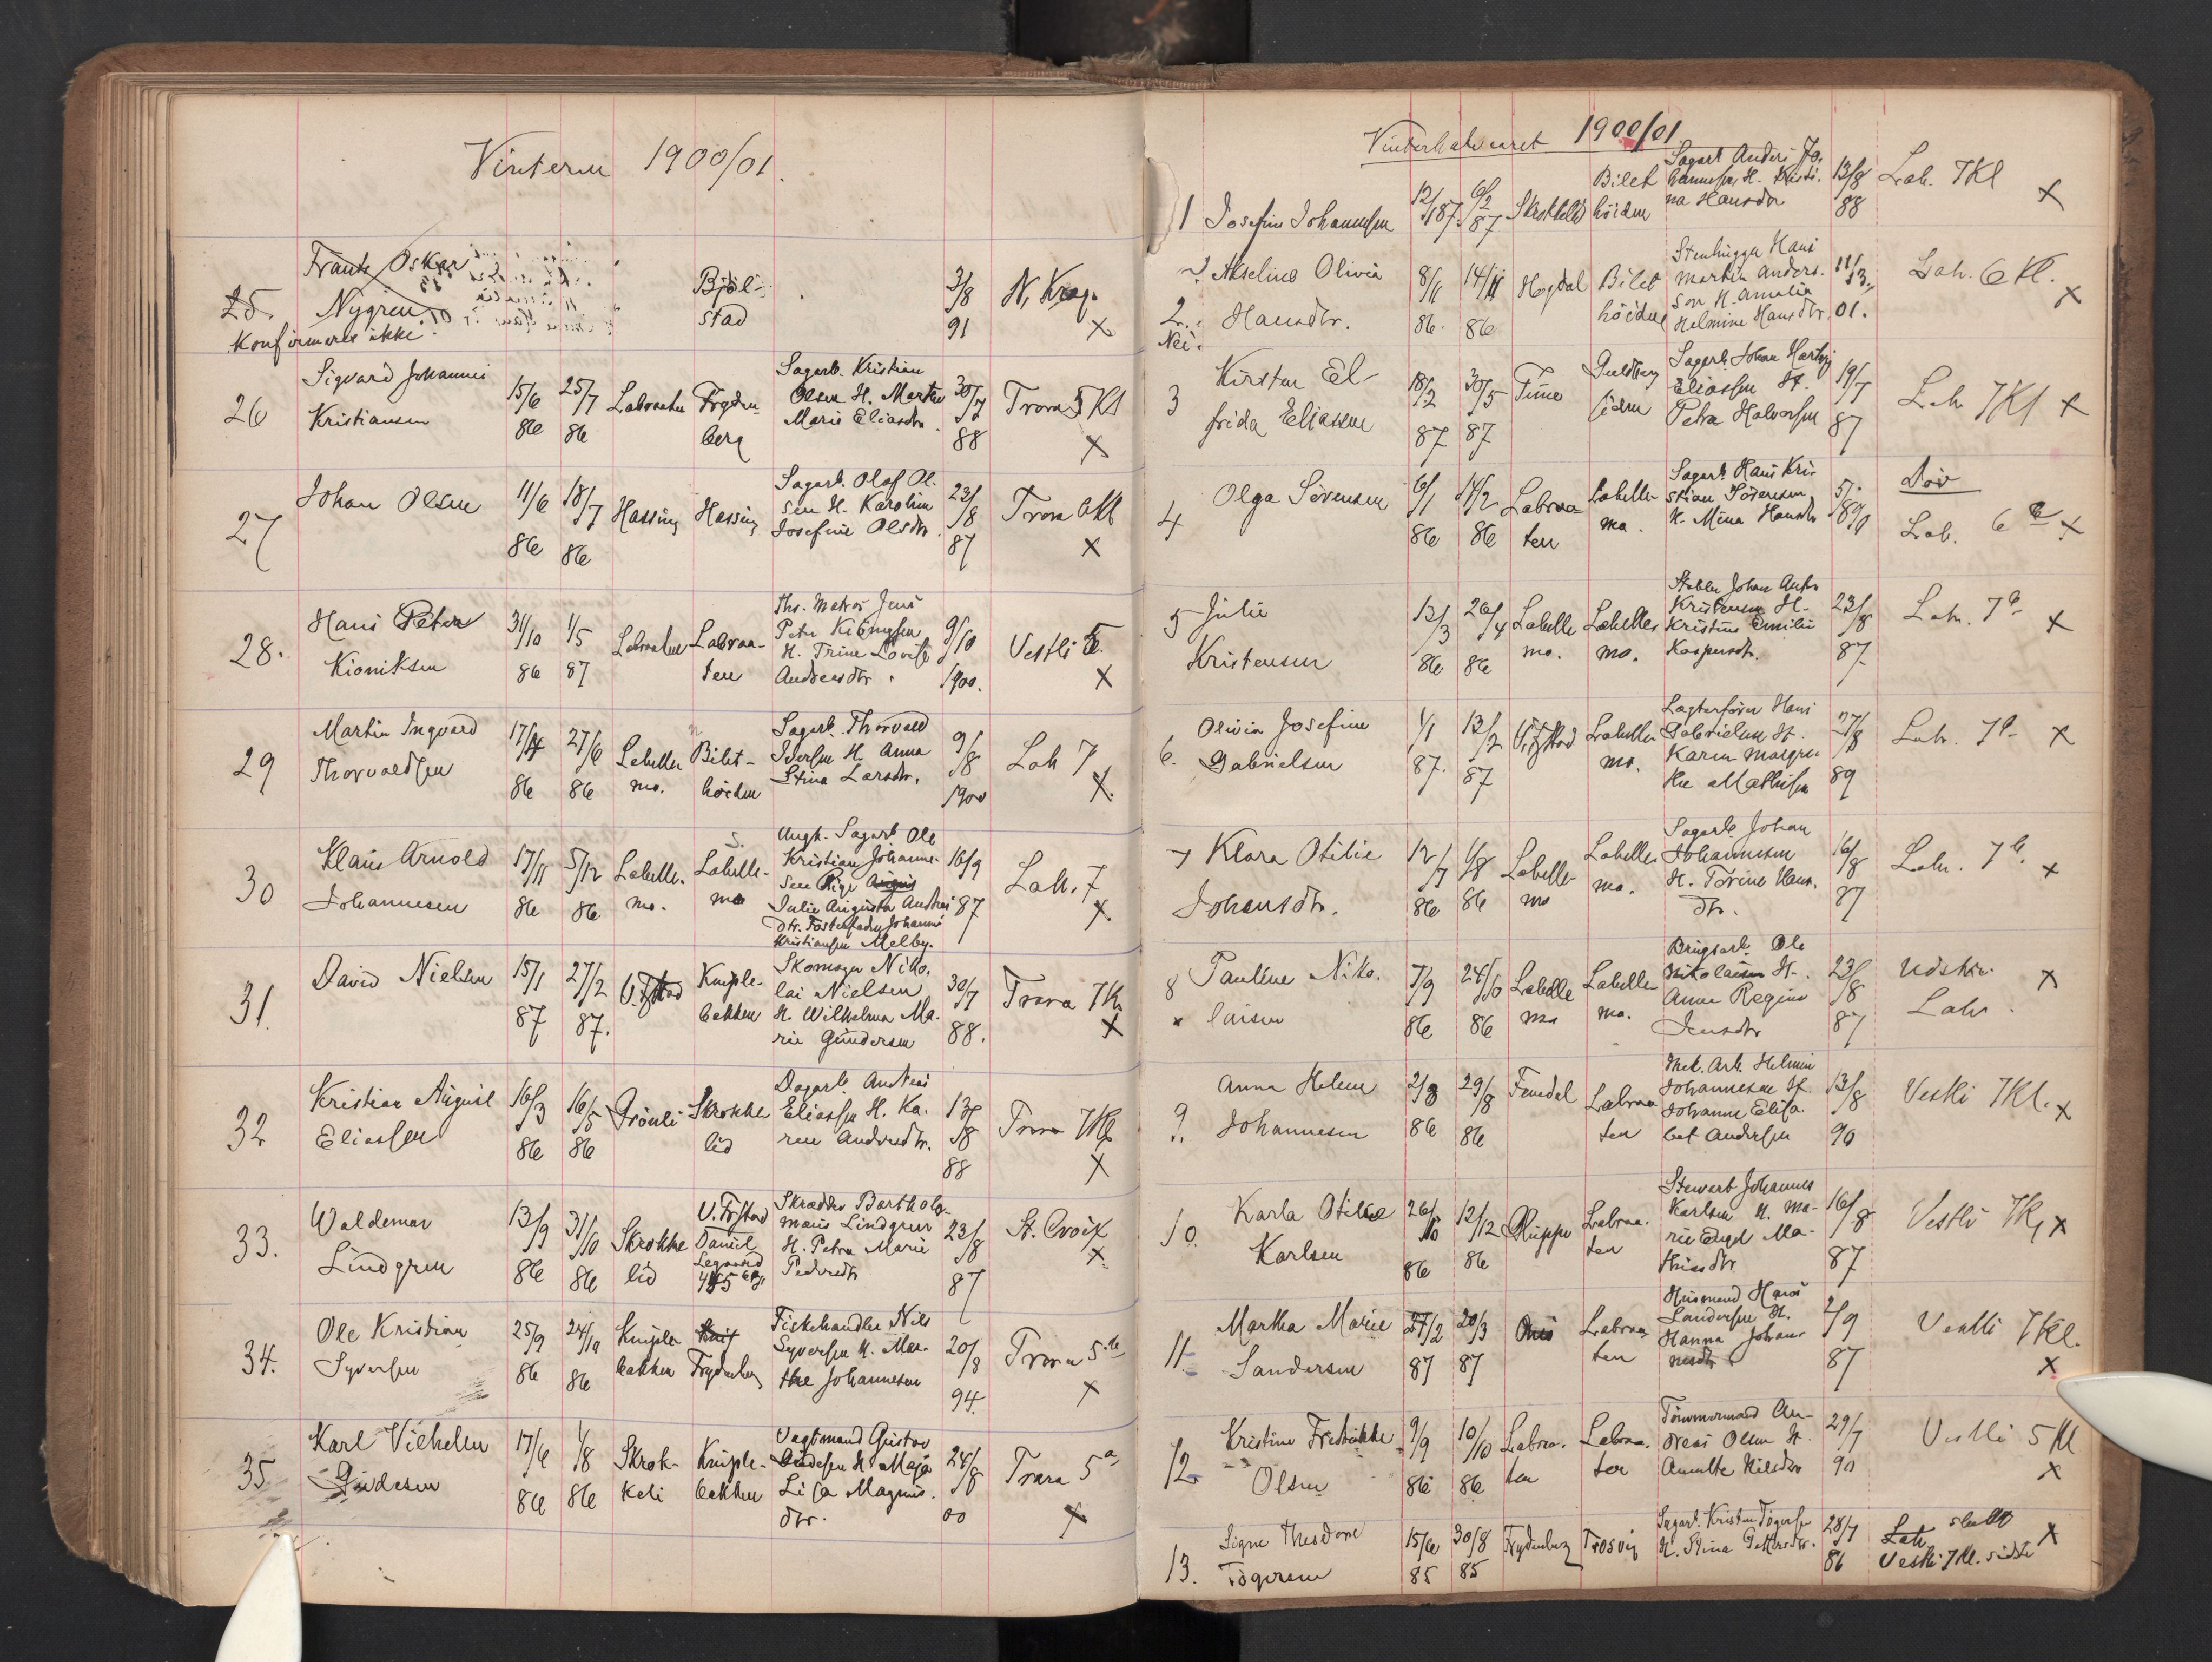 Vinteren 1900/01.
25. Frants Oskar Nygren Bjölstad 3/8 91 N. Krag. x
Konfirmeres ikke.
26 Sigvard Johannes Kristiansen 15/6 86 25/7 86 Labraaten Frydenberg Sagarb. Kristian Olsen H. Marthe Marie Eliasdtr. 30/7 88 Trara 5 Kl x
27 Johan Olsen 11/6 86 18/7 86 Hassing Hassing Sagarb. Olaf Olsen H. Karoline Josefine Olsdtr. 23/8 87 Trara x
28. Hans Peter 31/10 86 1/5 87 Labraaten Labraaten Ths. Matros Jens Peter H. Trine Lovise Andreasdtr. 9/10 1900. Vestli 5. x
29 Martin Ingvard Thorvaldsen 17/4 86 27/6 86 Labellemo. Bilethöiden Sagarb. Thorvald Iversen H. Anna Stina Larsdtr. 9/8 1900 Lah 7 x.
30 Klaus Arnold Johannesen 17/11 86 5/12 86 Labellemo. S. Labellemo Ungk. Sagarb Ole Kristian Johannesen Pige Julie Augusta Andreasdtr. Fosterfader Johannes Kristiansen Melby. 16/9 87 Lah. 7 x.
31. David Nielsen 15/1 87 27/2 87. V. Fjstad Kniplebakken Skomager Nikolai Nielsen H. Wilhelma Marie Gundersen 30/7 88. Trara 7 Kl x
32 Kristian August Eliassen 16/3 86 16/5 86 Grönli Skrokkelid Dagarb. Andreas Eliassen H. Karen Andreasdtr. 13/8 88 Trara 7 Kl x
33. Waldemar Lindgren 13/9 86 31/10 86 Skrokkelid V. Frstad Daniel Skrædder Bartholomæus Lindgren H. Petra Marie Pedersdtr 23/8 87 St. Croix x.
34. Ole Kristian Syversen 25/9 86 24/10 86 Kniplebakken Frydenberg Fiskehandler Nils Syversen H. Marthe Johannesen 20/8 94. Trara 5. x
35 Karl Vilhelm Gudesen 17/6 86 1/8 86 Skrokkeli Kniplebakken Vagtmand Gustav Gudesen H. Maja Lisa Magnusdtr. 24/8 00 Trara 5a x
Vinterhalvaaret 1900/01
1 Josefine Johannesen 12/1 87. 6/2 87 Skrokkelid Bilethöiden Sagarb Anders Johannesen, H. Kristina Hansdtr 13/8 88 Lah. 7 Kl x
2. Akseline Olivia Hansdtr. 8/11 86. 14/11 86 Hogdal Bilethöiden Stenhugger Hans Martin Anderson H. Amalia Helmine Hansdtr. 11/3 01. Lah. 6 Kl. x
Nei.
3 Kirsten Elfrida Eliassen 18/2 87 30/5 87 Tune Guldbergsiden Sagarb. Johan Hartvig Eliassen H. Petra Halvorsen 19/7 87 Lah 7 Kl x
4 Olga Sörensen 6/1 86 14/2 86 Labraaten Labellemo. Sagarb Hans Kristian Sörensen H. Mina Hansdtr 5/8 90 Döv Lah. 6 x
5 Julie Kristensen 13/3 86 26/4 86 Labellemo. Labellemo. Stabler Johan Anton Kristensen H. Kristine Emilie Kaspersdtr. 23/8 87 Lah. 7 x
6. Olivia Josefine Gabrielsen 1/1 87. 13/2 87 V. Fjstad Labellemo. Lagterfører Hans Gabrielsen H. Karen Margrethe Mathisen 27/8 89 Lah. 7 x
7 Klara Otilie Johansdtr. 12/7 86 1/8 86 Labellemo Labellemo. Sagarb. Johan Johannesen H. Torine Hansdtr. 16/8 87 Lah. 7 x
8 x Pauline Nikolaisen 7/9 86 24/10 86 Labellemo Labellemo. Brugsarb. Ole Nikolaisen H. Anne Regine Jensdtr 23/8 87 Udskr. Lah. x
9. Anna Helene Johannesen 2/8 86 29/8 86 Labraaten Mek. Arb. Helmin Johannesen H. Johanne Elisabet Andersen 13/8 90 Vestli 7 Kl. x
10. Karla Otilie Karlsen 26/10 86 12/12 86 Labraaten Stewart Johannes Karlsen H. Marie Mathisdtr 16/8 87 Vestli 7 Kl x
11. Martha Marie Sandersen 27/2 87 20/3 87 Labraaten Husmand Hans Sandersen H. Hanna Johannesdtr 2/9 87 Vestli 7 Kl. x
12 Kristine Fredrikke Olsen 9/9 86 10/10 86 Labraaten Labraaten Tømmermand Andreas Olsen H. Amalie Nilsdtr 29/7 90 Vestli 5 Kl x
13. Signe Theodore Togersen 15/6 85 30/8 85 Frydenberg Trosvig Sagarb. Kristen Togersen H. Stina Pettersdtr. 28/7 86 Lah Vestli 7 Kl. sidste x